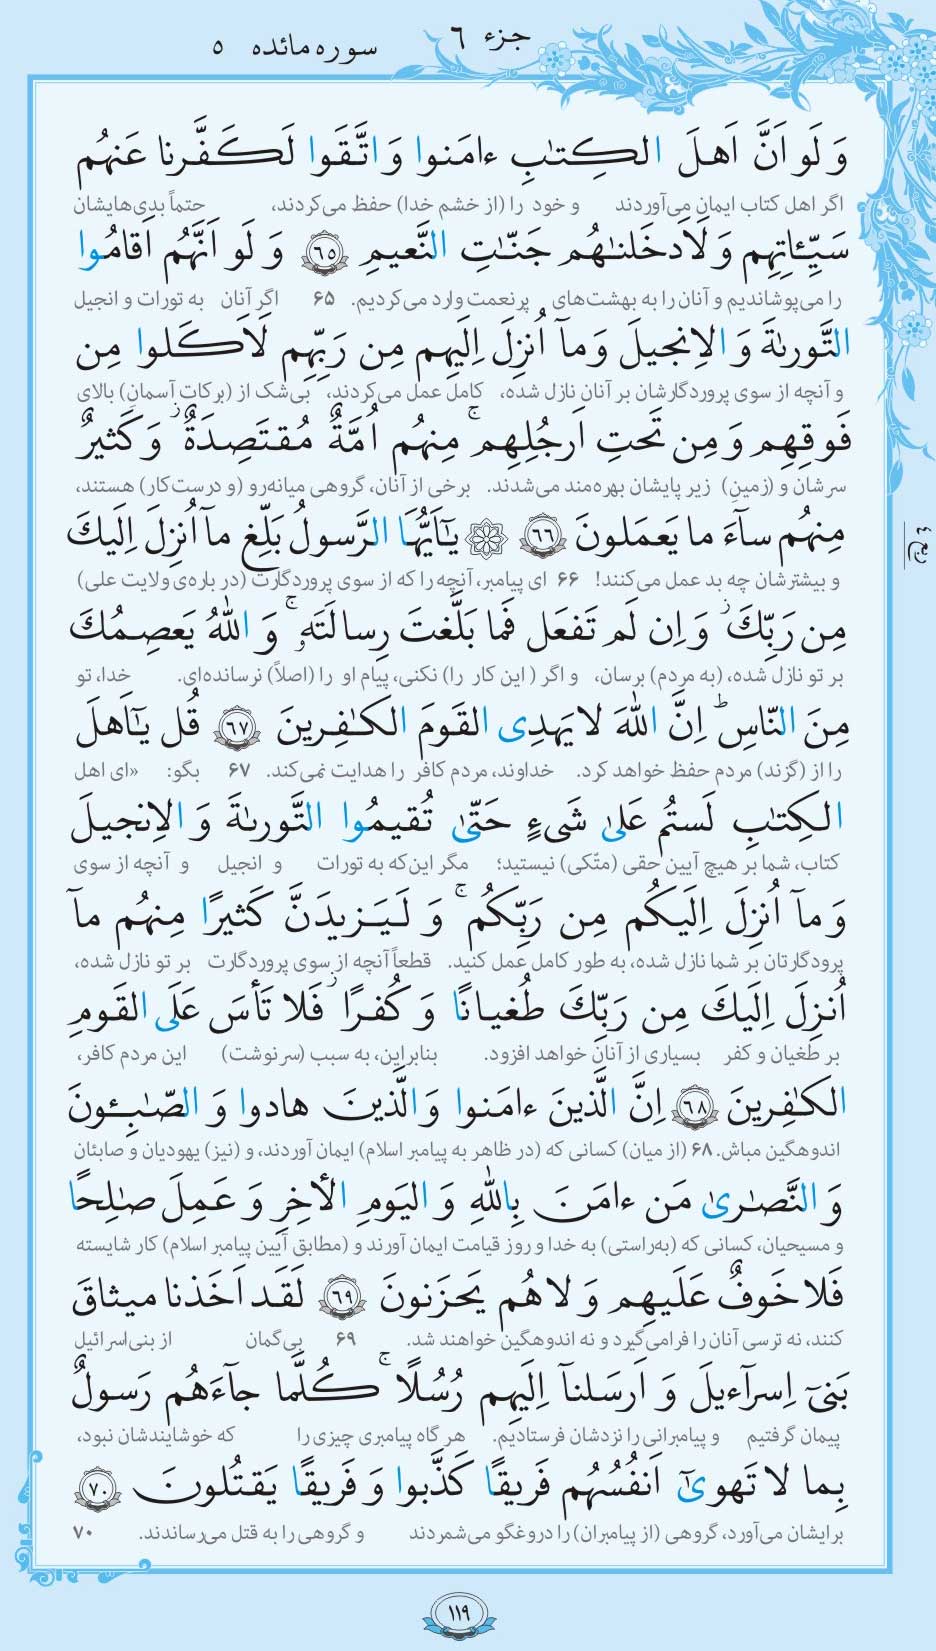 جزء ۶ سوره مائده ۵
وَ لَو اَنَّ اَهلَ الکِتٰبِ ءامَنوا وَ اتَّقَوا لَکَفَّرنا عَنهُم
اگر اهل کتاب ایمان می‌آوردند و خود را (از خشم خدا) حفظ می‌کردند، حتماً بدی‌هایشان
سَیِّئاتِهِم وَ لَاَدخَلنٰهُم جَنّٰتِ النَّعیمِ ﴿۶۵﴾ وَ لَو اَنَّهُم اَقامُوا
را می‌پوشاندیم و آنان را به بهشت‌های پرنعمت وارد می‌کردیم. ۶۵ اگر آنان به تورات و انجیل
التَّورىٰةَ وَ الاِنجیلَ وَ مآ اُنزِلَ اِلَیهِم مِن رَبِّهِم لَاَکَلوا مِن
و آنچه از سوی پروردگارشان بر آنان نازل شده، کامل عمل می‌کردند، بی‌شک از (برکات آسمانِ) بالای
فَوقِهِم وَ مِن تَحتِ اَرجُلِهِم ۚ مِنهُم اُمَّةٌ مُقتَصِدَةٌ ۖ وَ کَثیرٌ
سرشان و (زمینِ) زیر پایشان بهره‌مند می‌شدند. برخی از آنان، گروهی میانه‌رو (و درست‌کار) هستند،
مِنهُم سآءَ ما یَعمَلونَ ﴿۶۶﴾ ۞ یٰٓاَیُّهَا الرَّسولُ بَلِّغ مآ اُنزِلَ اِلَیكَ
و بیشترشان چه بد عمل می‌کنند! ۶۶ ای پیامبر، آنچه را که از سوی پروردگارت (در باره‌ی ولایت علی)
مِن رَبِّكَ ۖ وَ اِن لَم تَفعَل فَما بَلَّغتَ رِسالَتَهٗ ۚ وَ اللّٰهُ یَعصِمُكَ
بر تو نازل شده، (به مردم) برسان، و اگر ( این کار را) نکنی، پیام او را (اصلاً) نرسانده‌ای. خدا، تو
مِنَ النّاسِ ؕ اِنَّ اللّٰهَ لا یَهدِی القَومَ الکٰفِرینَ ﴿۶۷﴾ قُل یٰٓاَهلَ
را از (گزند) مردم حفظ خواهد کرد. خداوند، مردم کافر را هدایت نمی‌کند. ۶۷ بگو: «ای اهل
الکِتٰبِ لَستُم عَلىٰ شَیءٍ حَتّىٰ تُقیمُوا التَّورىٰةَ وَ الاِنجیلَ
کتاب، شما بر هیچ آیین حقی (متّکی) نیستید؛ مگر این‌که به تورات و انجیل و آنچه از سوی
وَ مآ اُنزِلَ اِلَیکُم مِن رَبِّکُم ۚ وَ لَیَزیدَنَّ کَثیرًا مِنهُم مآ
پرودگارتان بر شما نازل شده، به طور کامل عمل کنید. قطعاً آنچه از سوی پروردگارت بر تو نازل شده،
اُنزِلَ اِلَیكَ مِن رَبِّكَ طُغیانًا وَ کُفرًا ۖ فَلا تَأسَ عَلَى القَومِ
بر طغیان و کفر بسیاری از آنان خواهد افزود. بنابراین، به سبب (سرنوشت) این مردم کافر،
الکٰفِرینَ ﴿۶۸﴾ اِنَّ الَّذینَ ءامَنوا وَ الَّذینَ هادوا وَ الصّٰبِئونَ
اندوهگین مباش. ۶۸ (از میان) کسانی که (در ظاهر به پیامبر اسلام) ایمان آوردند، و (نیز) یهودیان و صابئان
وَ النَّصٰرىٰ مَن ءامَنَ بِاللّٰهِ وَ الیَومِ الأخِرِ وَ عَمِلَ صالِحًا
و مسیحیان، کسانی که (به‌راستی) به خدا و روز قیامت ایمان آورند و (مطابق آیین پیامبر اسلام) کار شایسته
فَلا خَوفٌ عَلَیهِم وَ لا هُم یَحزَنونَ ﴿۶۹﴾ لَقَد اَخَذنا میثاقَ
کنند، نه ترسی آنان را فرامی‌گیرد و نه اندوهگین خواهند شد. ۶۹ بی‌گمان از بنی‌اسرائیل
بَنیٓ اِسرآءیلَ وَ اَرسَلنآ اِلَیهِم رُسُلًا ۚ کُلَّما جآءَهُم رَسولٌ
پیمان گرفتیم و پیامبرانی را نزدشان فرستادیم. هر گاه پیامبری چیزی را که خوشایندشان نبود،
بِما لا تَهوىٰٓ اَنفُسُهُم فَریقًا کَذَّبوا وَ فَریقًا یَقتُلونَ ﴿۷۰﴾
برایشان می‌آورد، گروهی (از پیامبران) را دروغگو می‌شمردند و گروهی را به قتل می‌رساندند. ۷۰
ربع ۴
۱۱۹